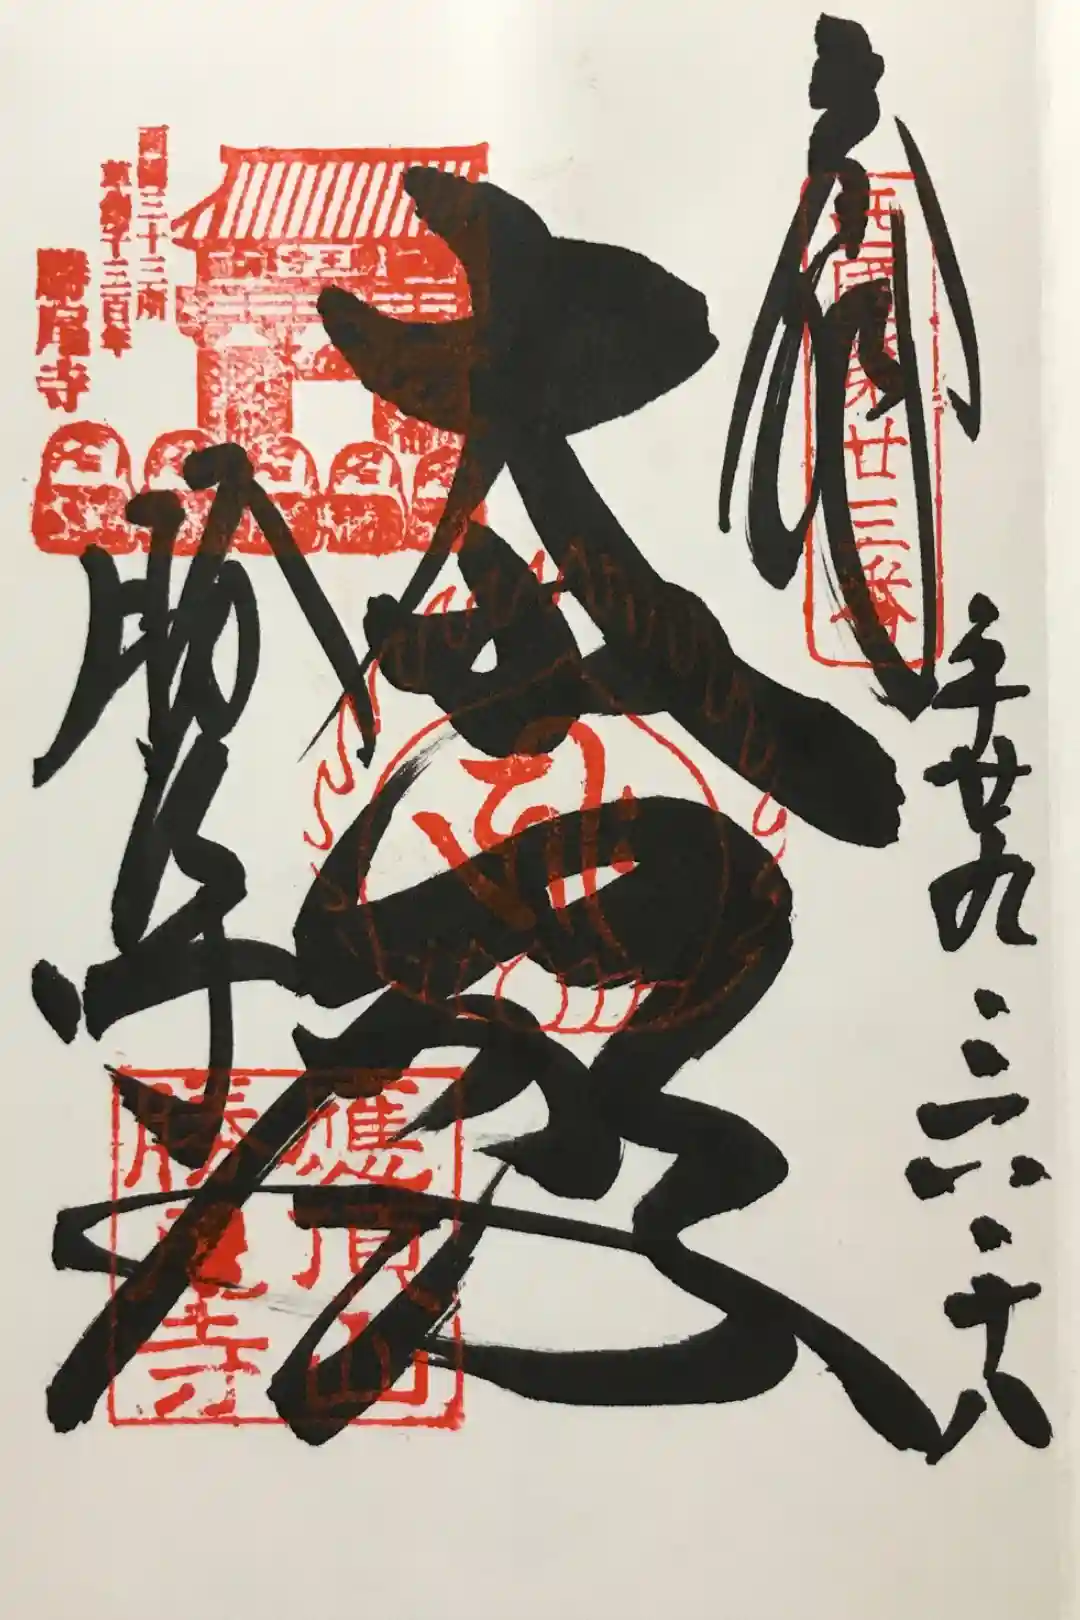 奉拝
西國第廿三番
平廿九・三・六・十六
大悲殿
勝尾寺
西国三十三所
草創千三百年
勝尾寺
應頂山
勝尾寺